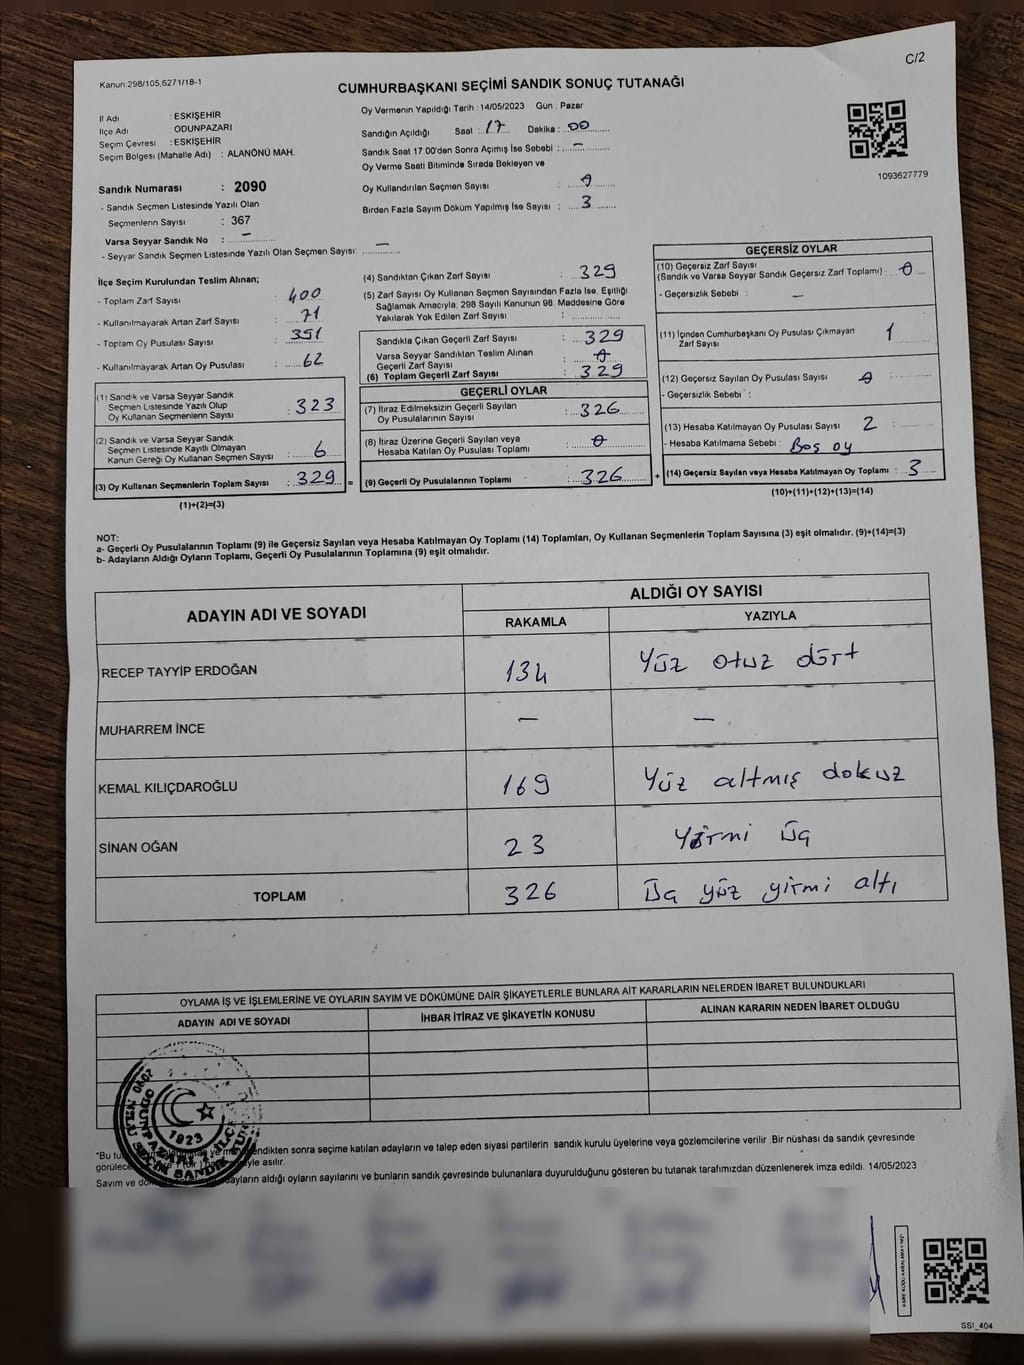 C/2
Kanun:298/105,6271/18-1
CUMHURBAŞKANI SEÇİMİ SANDIK SONUÇ TUTANAĞI
İl Adı : ESKİŞEHİR
İlçe Adı : ODUNPAZARI
Seçim Çevresi : ESKİŞEHİR
Seçim Bölgesi (Mahalle Adı) : ALANÖNÜ MAH.
Sandık Numarası : 2090
- Sandık Seçmen Listesinde Yazılı Olan
Seçmenlerin Sayısı : 367
Varsa Seyyar Sandık No : –
- Seyyar Sandık Seçmen Listesinde Yazılı Olan Seçmen Sayısı: –
Oy Vermenin Yapıldığı Tarih : 14/05/2023 Gün : Pazar
Sandığın Açıldığı Saat : 17 Dakika : 00
Sandık Saat 17.00'den Sonra Açımış İse Sebebi : –
Oy Verme Saati Bitiminde Sırada Bekleyen ve
Oy Kullandırılan Seçmen Sayısı : 0
Birden Fazla Sayım Döküm Yapılmış İse Sayısı : 3
1093627779
İlçe Seçim Kurulundan Teslim Alınan;
- Toplam Zarf Sayısı : 400
- Kullanılmayarak Artan Zarf Sayısı : 71
- Toplam Oy Pusulası Sayısı : 391
- Kullanılmayarak Artan Oy Pusulası : 62
(1) Sandık ve Varsa Seyyar Sandık
Seçmen Listesinde Yazılı Olup
Oy Kullanan Seçmenlerin Sayısı : 323
(2) Sandık ve Varsa Seyyar Sandık
Seçmen Listesinde Kayıtlı Olmayan
Kanun Gereği Oy Kullanan Seçmen Sayısı : 6
(3) Oy Kullanan Seçmenlerin Toplam Sayısı : 329 =
(1)+(2)=(3)
(4) Sandıktan Çıkan Zarf Sayısı : 329
(5) Zarf Sayısı Oy Kullanan Seçmen Sayısından Fazla İse, Eşitliği
Sağlamak Amacıyla, 298 Sayılı Kanunun 98. Maddesine Göre
Yakılarak Yok Edilen Zarf Sayısı :
Sandıkta Çıkan Geçerli Zarf Sayısı : 329
Varsa Seyyar Sandıktan Teslim Alınan
Geçerli Zarf Sayısı : 0
(6) Toplam Geçerli Zarf Sayısı : 329
GEÇERLİ OYLAR
(7) İtiraz Edilmeksizin Geçerli Sayılan
Oy Pusulalarının Sayısı : 326
(8) İtiraz Üzerine Geçerli Sayılan veya
Hesaba Katılan Oy Pusulası Toplamı : 0
(9) Geçerli Oy Pusulalarının Toplamı : 326 +
GEÇERSİZ OYLAR
(10) Geçersiz Zarf Sayısı
(Sandık ve Varsa Seyyar Sandık Geçersiz Zarf Toplamı) : 0
- Geçersizlik Sebebi : –
(11) İçinden Cumhurbaşkanı Oy Pusulası Çıkmayan
Zarf Sayısı 1
(12) Geçersiz Sayılan Oy Pusulası Sayısı : 0
- Geçersizlik Sebebi :
(13) Hesaba Katılmayan Oy Pusulası Sayısı : 2
- Hesaba Katılmama Sebebi : Boş oy
(14) Geçersiz Sayılan veya Hesaba Katılmayan Oy Toplamı : 3
(10)+(11)+(12)+(13)=(14)
NOT:
a- Geçerli Oy Pusulalarının Toplamı (9) ile Geçersiz Sayılan veya Hesaba Katılmayan Oy Toplamı (14) Toplamları, Oy Kullanan Seçmenlerin Toplam Sayısına (3) eşit olmalıdır. (9)+(14)=(3)
b- Adayların Aldığı Oyların Toplamı, Geçerli Oy Pusulalarının Toplamına (9) eşit olmalıdır.
ADAYIN ADI VE SOYADI ALDIĞI OY SAYISI
RAKAMLA YAZIYLA
RECEP TAYYİP ERDOĞAN 134 Yüz otuz dört
MUHARREM İNCE – –
KEMAL KILIÇDAROĞLU 169 Yüz altmış dokuz
SİNAN OĞAN 23 Yirmi üç
TOPLAM 326 Üç yüz yirmi altı
OYLAMA İŞ VE İŞLEMLERİNE VE OYLARIN SAYIM VE DÖKÜMÜNE DAİR ŞİKAYETLERLE BUNLARA AİT KARARLARIN NELERDEN İBARET BULUNDUKLARI
ADAYIN ADI VE SOYADI İHBAR İTİRAZ VE ŞİKAYETİN KONUSU ALINAN KARARIN NEDEN İBARET OLDUĞU
1923
*Bu endikten sonra seçime katılan adayların ve talep eden siyasi partilerin sandık kurulu üyelerine veya gözlemcilerine verilir. Bir nüshası da sandık çevresinde
asılır.
Sayım ve adayların aldığı oyların sayılarını ve bunların sandık çevresinde bulunanlara duyurulduğunu gösteren bu tutanak tarafımızdan düzenlenerek imza edildi. 14/05/2023
SSI_404